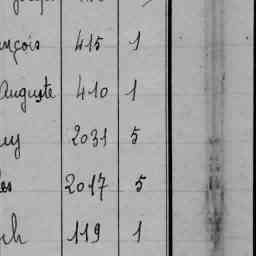 nçois 415 1
Auguste 410 1
2031 5
2017 5
ch 119 1